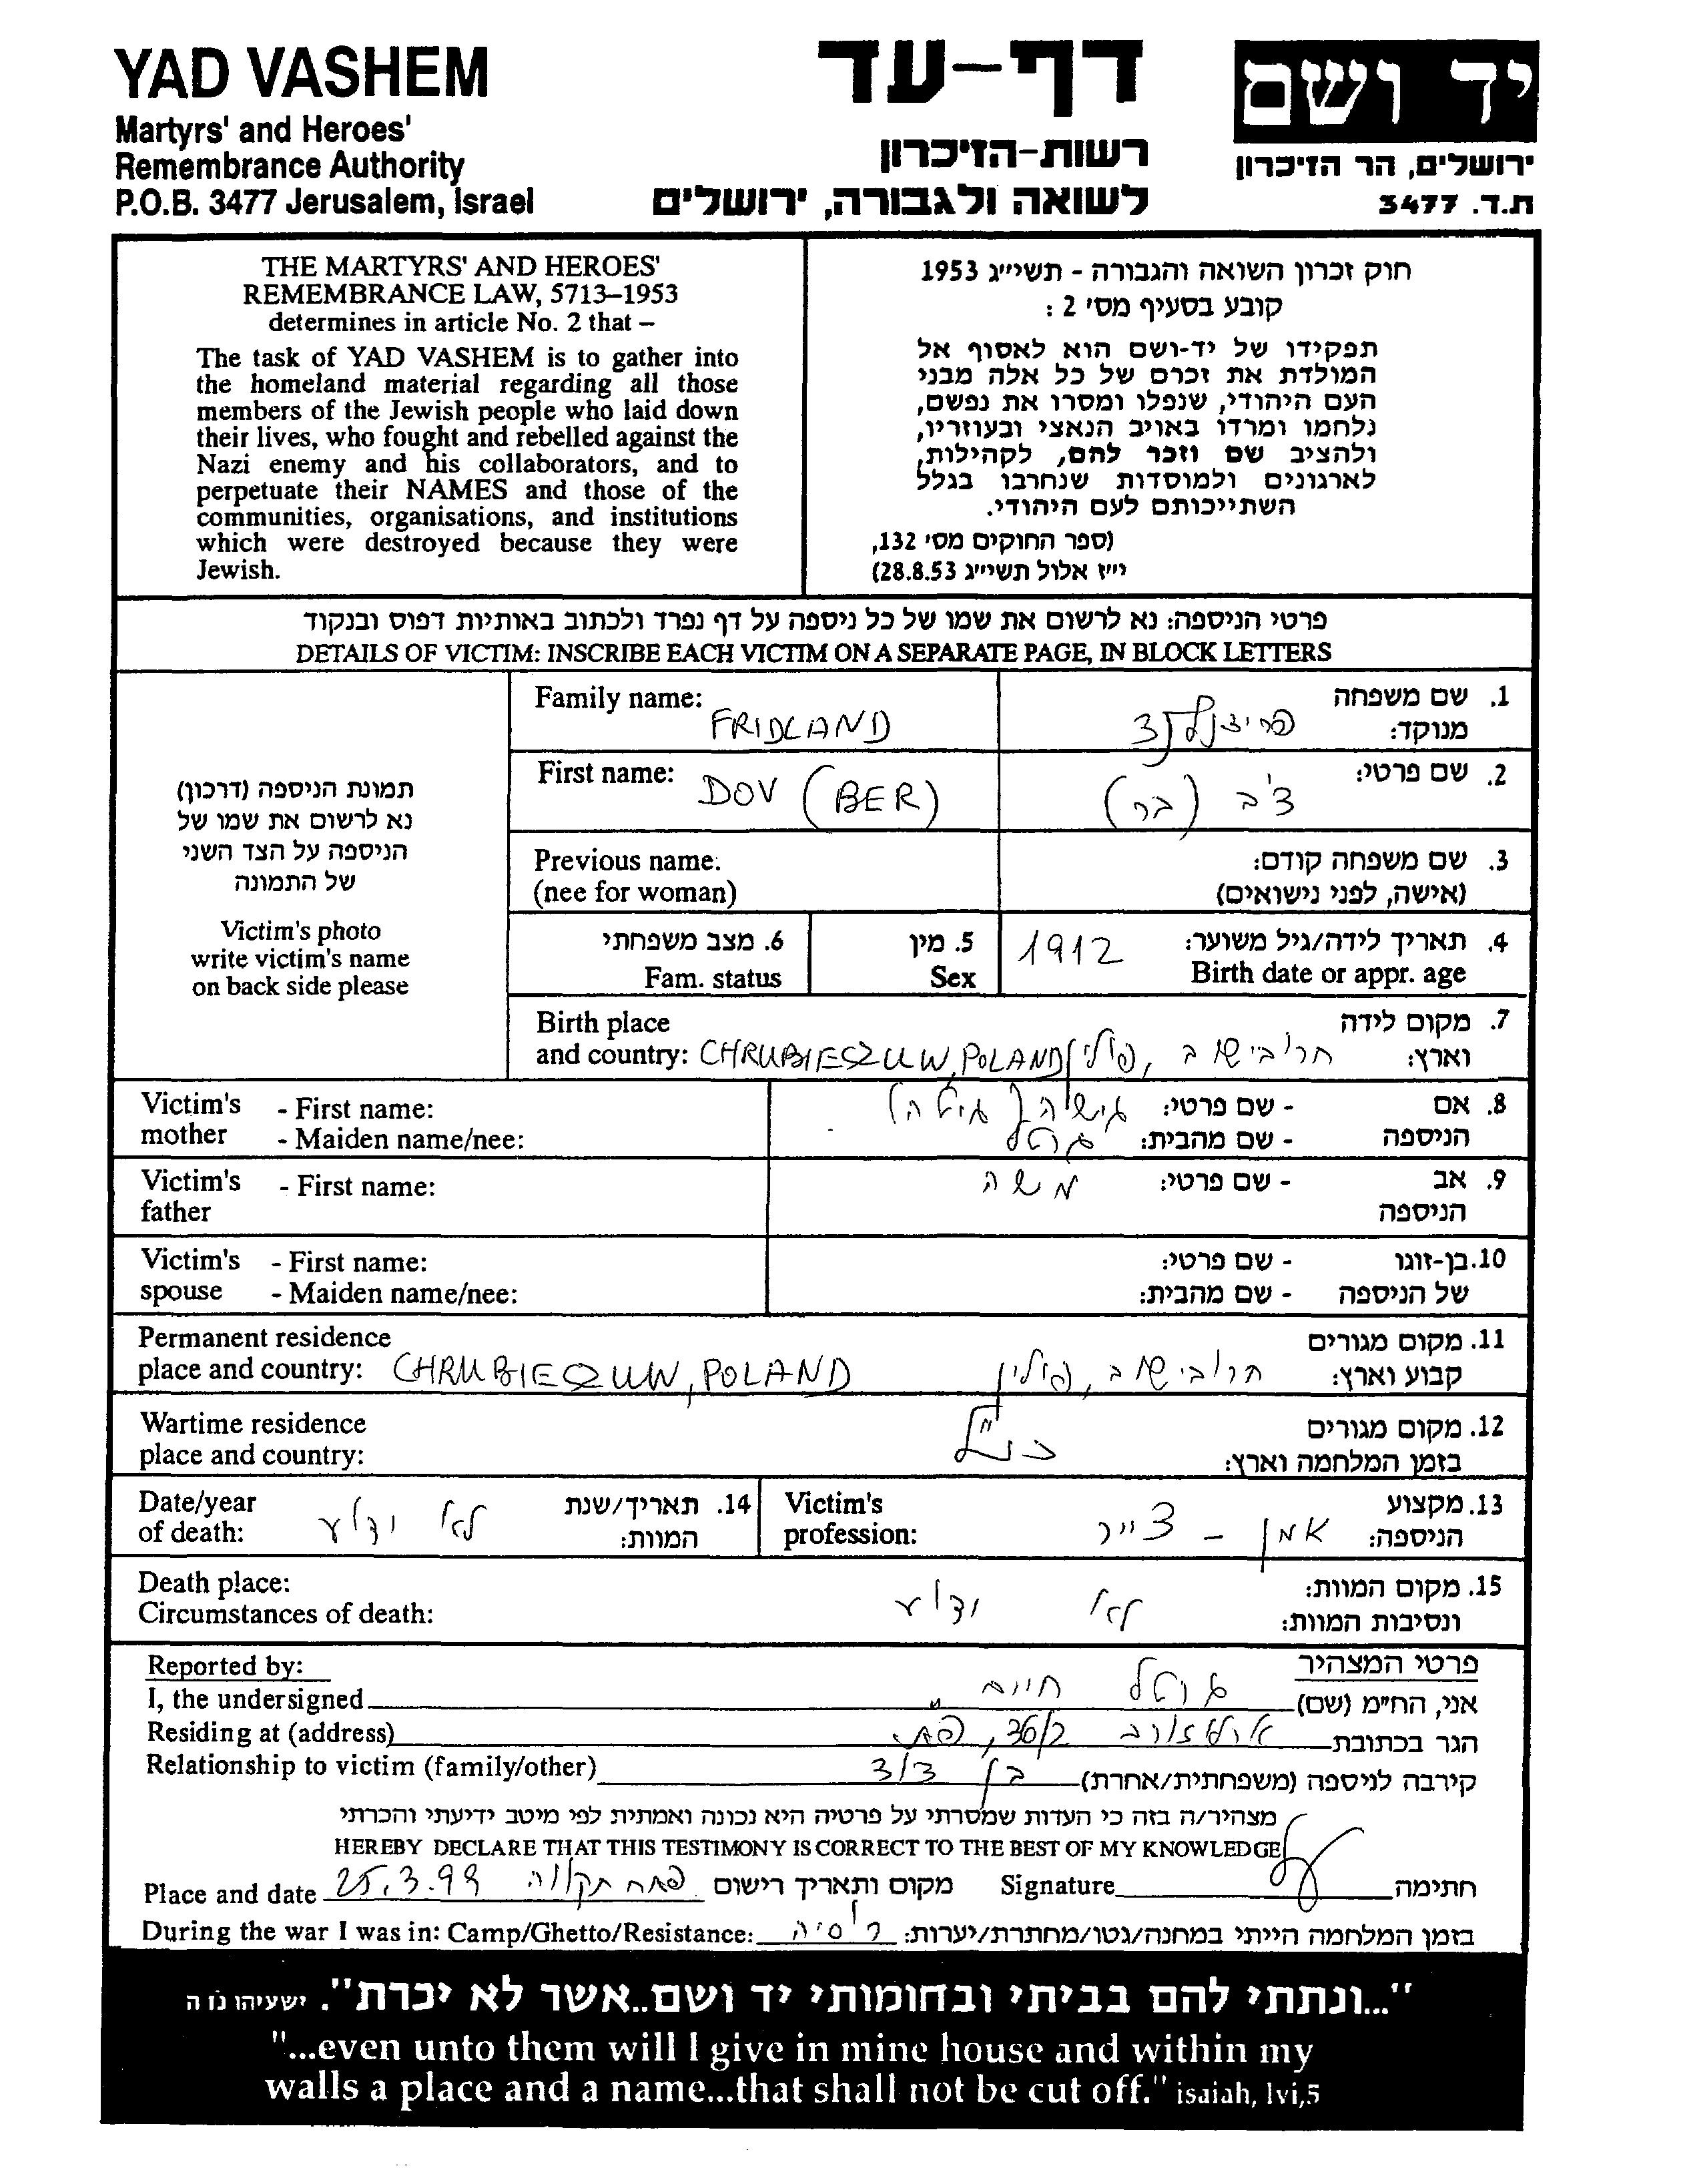 YAD VASHEM
Martyrs' and Heroes'
Remembrance Authority
P.O.B. 3477 Jerusalem, Israel
דף-עד
רשות-הזיכרון
לשואה ולגבורה, ירושלים
יד ושם
ירושלים, הר הזיכרון
ת.ד. 3477
THE MARTYRS' AND HEROES'
REMEMBRANCE LAW, 5713–1953
determines in article No. 2 that –
The task of YAD VASHEM is to gather into
the homeland material regarding all those
members of the Jewish people who laid down
their lives, who fought and rebelled against the
Nazi enemy and his collaborators, and to
perpetuate their NAMES and those of the
communities, organisations, and institutions
which were destroyed because they were
Jewish.
חוק זכרון השואה והגבורה - תשי״ג 1953
קובע בסעיף מס׳ 2 :
תפקידו של יד-ושם הוא לאסוף אל
המולדת את זכרם של כל אלה מבני
העם היהודי, שנפלו ומסרו את נפשם,
נלחמו ומרדו באויב הנאצי ובעוזריו,
ולהציב שם וזכר להם, לקהילות,
לארגונים ולמוסדות שנחרבו בגלל
השתייכותם לעם היהודי.
(ספר החוקים מס׳ 132,
י״ז אלול תשי״ג 28.8.53)
פרטי הניספה: נא לרשום את שמו של כל ניספה על דף נפרד ולכתוב באותיות דפוס ובנקוד
DETAILS OF VICTIM: INSCRIBE EACH VICTIM ON A SEPARATE PAGE, IN BLOCK LETTERS
תמונת הניספה (דרכון)
נא לרשום את שמו של
הניספה על הצד השני
של התמונה
Victim's photo
write victim's name
on back side please
Family name: FRIDLAND
1. שם משפחה מנוקד: פרידלנד
First name: DOV (BER)
2. שם פרטי: דב (בר)
Previous name.
(nee for woman)
3. שם משפחה קודם:
(אישה, לפני נישואים)
6. מצב משפחתי
Fam. status
5. מין
Sex
4. תאריך לידה/גיל משוער: 1912
Birth date or appr. age
Birth place
and country: CHRUBIESZUW, POLAND
7. מקום לידה
וארץ: חרובישוב, פולין
Victim's mother - First name:
- Maiden name/nee:
8. אם הניספה - שם פרטי:
- שם מהבית: גרטל
Victim's father - First name:
9. אב הניספה - שם פרטי: משה
Victim's spouse - First name:
- Maiden name/nee:
10. בן-זוגו של הניספה - שם פרטי:
- שם מהבית:
Permanent residence
place and country: CHRUBIEQUW, POLAND
11. מקום מגורים
קבוע וארץ: חרובישוב, פולין
Wartime residence
place and country:
12. מקום מגורים
בזמן המלחמה וארץ: כנ"ל
Date/year
of death:
14. תאריך/שנת
המוות: לא ידוע
Victim's
profession:
13. מקצוע
הניספה: אמן - צייר
Death place:
Circumstances of death:
15. מקום המוות:
ונסיבות המוות: לא ידוע
Reported by:
פרטי המצהיר
I, the undersigned
אני, הח״מ (שם) גרטל חיים
Residing at (address)
הגר בכתובת ארלוזורוב 36/2, פת
Relationship to victim (family/other)
קירבה לניספה (משפחתית/אחרת) בן דוד
מצהיר/ה בזה כי העדות שמסרתי על פרטיה היא נכונה ואמתית לפי מיטב ידיעתי והכרתי
HEREBY DECLARE THAT THIS TESTIMONY IS CORRECT TO THE BEST OF MY KNOWLEDGE
Place and date 25.3.99 פתח תקווה מקום ותאריך רישום
Signature חתימה
During the war I was in: Camp/Ghetto/Resistance:
בזמן המלחמה הייתי במחנה/גטו/מחתרת/יערות: רוסיה
"...ונתתי להם בביתי ובחומותי יד ושם..אשר לא יכרת". ישעיהו נו ה
"...even unto them will I give in mine house and within my
walls a place and a name...that shall not be cut off." isaiah, lvi,5